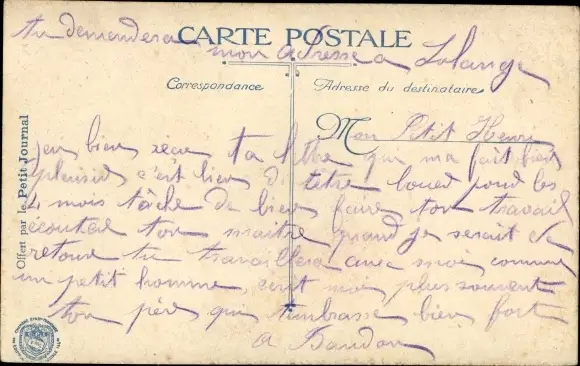 tu demandera mon adresse a Solange
CARTE POSTALE
Correspondance
Adresse du destinataire
Mon Petit Henri
j'en bien recu ta lettre qui ma fait bien
plaisir c'est bien d' têtre loued pond les
4 mois tâche de bien faire ton travail
écouter ton maitre quand je serait de
retour tu travaillera avec moi comme
un petit homme, ecrit moi plus souvent
ton père qui t'embrasse bien fort
a Baudon
Offert par le Petit Journal